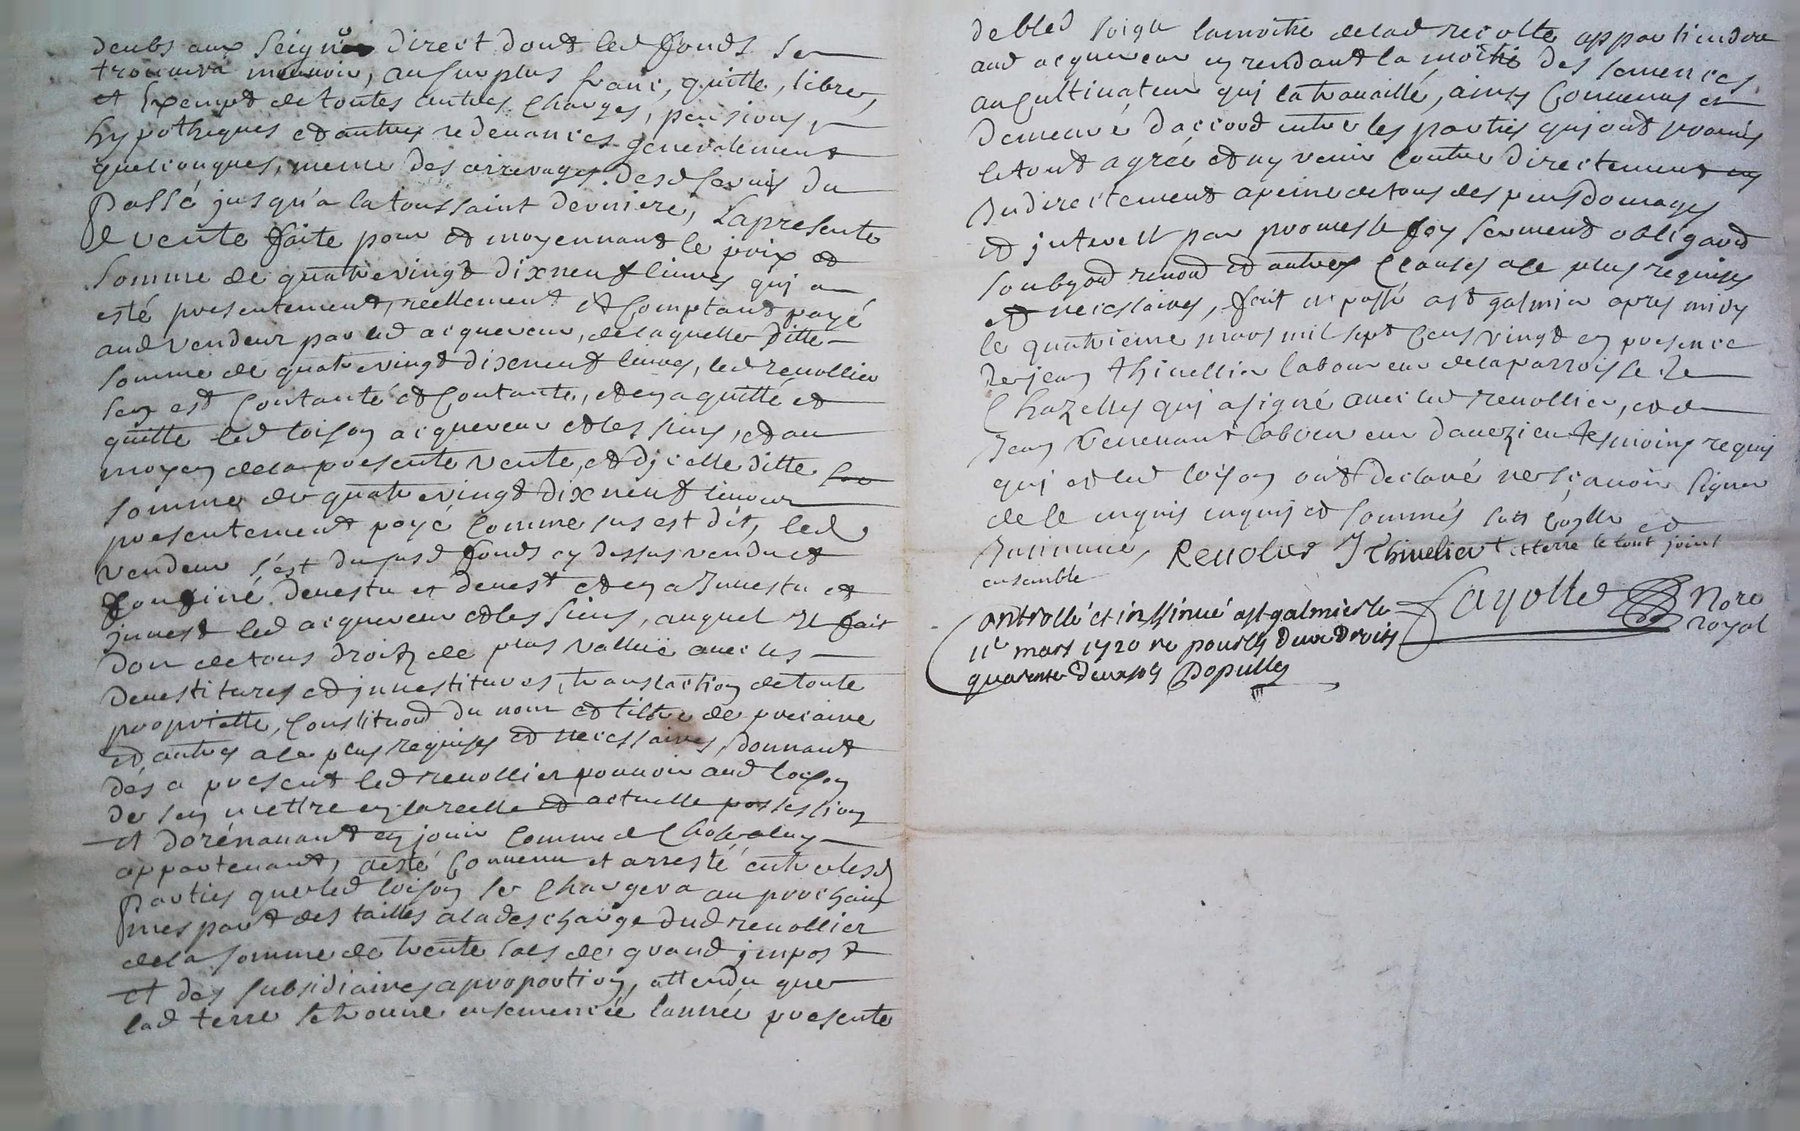 deubs aux seigrs direct dont led fonds se
trouvera mouvoir, au surplus franc, quitte, libre,
et Exempt de toutes autres charges, pensions,
hypotheques et autres redevances generalement
quelconques, meme des arrerages desd servis du
Passé jusqu'a la toussaint derniere, La presente
vente faite pour et moyennant le prix et
somme de quatre vingt dix neuf livres qui a
esté presentement, reellement et Comptant payé
aud vendeur par led acquereur, de laquelle ditte
somme de quatre vingt dixneuf livres, led renollier
sen est Contanté et Contante, et en a quitté et
quitte led loison acquereur et les siens, et au
moyen de la presente vente, et d'icelle ditte
somme de quatre vingt dix neuf livres
presentement payé Comme sus est dit, led
vendeur s'est dususd fonds cy dessus vendu et
Confiné devestu et devest et en a Investu et
jnvest led acquereur et les siens, auquel Il fait
don de tous droits de plus vallue avec les
devestitures et jnvestitures, translaction de toute
proprietté, Constituond du nom et tiltre de precaire
et autres a ce plus requises et necessaires, donnant
dés a present led renollier pouvoir aud loison
de sen mettre en la reelle et actuelle possession
et dorénavant en jouir Comme de Chose a luy
appartenant, a esté Convenu et arresté entre lesd
Parties que led loison se Chargera au prochain
mespart des tailles a la descharge dud renollier
de la somme de trente sols de grand jmpost
et des subsidiaires a proportion, attendu que
lad terre se trouve ensemencée l'année presente
de bled soigle la moitié de lad recolte appartiendra
aud acquereur en rendant la moitié des semences
au Cultivateur qui la travaillé, ainsy Convenus et
demeuré d'accord entre les parties qui ont promis
le tout agréé et ny venir Contre directement ny
Indirectement a peine de tous despens domages
et jnterest par promesse foy serment obligaond
soubzond renond et autres Clauses a ce plus requises
et necessaires, fait et passé a st galmier apres midy
le quatrieme mars mil sept Cens vingt en presence
de jean thivellier laboureur de la parroisse de
Chazelles qui a signé avec led renollier, et de
Jean Venenant laboureur d'avezieu tesmoins requis
qui et led loison ont declaré ne sçavoir signer
de ce enquis enquis et sommés et
Renolier J thivelier + et terre le tout joint
ensemble
Controllé et inssinué a st galmier le
11e mars 1720 re pour les deux droits
quarente deux sols Populle
Fayolle Nore
royal